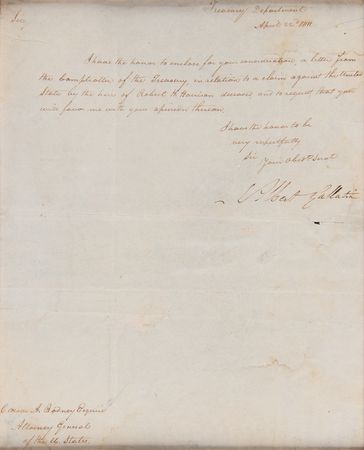 Treasury Department
April 22d 1811
Sir
I have the honor to enclose for your consideration, a letter from
the Comptroller of the Treasury in relation to a claim against the United
States by the heirs of Robert H. Harrison deceased and to request that you
will favor me with your opinion thereon.
I have the honor to be
very respectfully
Sir
Your Obedt. Servt
Albert Gallatin
Caesar A. Rodney Esquire
Attorney General
of the U. States.